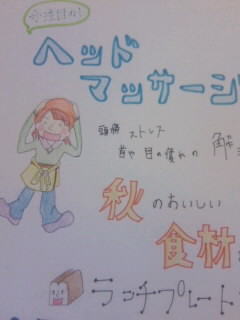 ヘッド
マッサージ
頭痛 ストレス
首や 目の疲れの 解
秋のおいしい
食材
ランチプレート